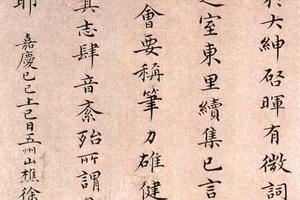 於大紳啓暉有微詞
之室東里續集已言
會要稱筆力雄健
真志肆音紊殆所謂
耶
嘉慶己巳上巳日五州山樵徐